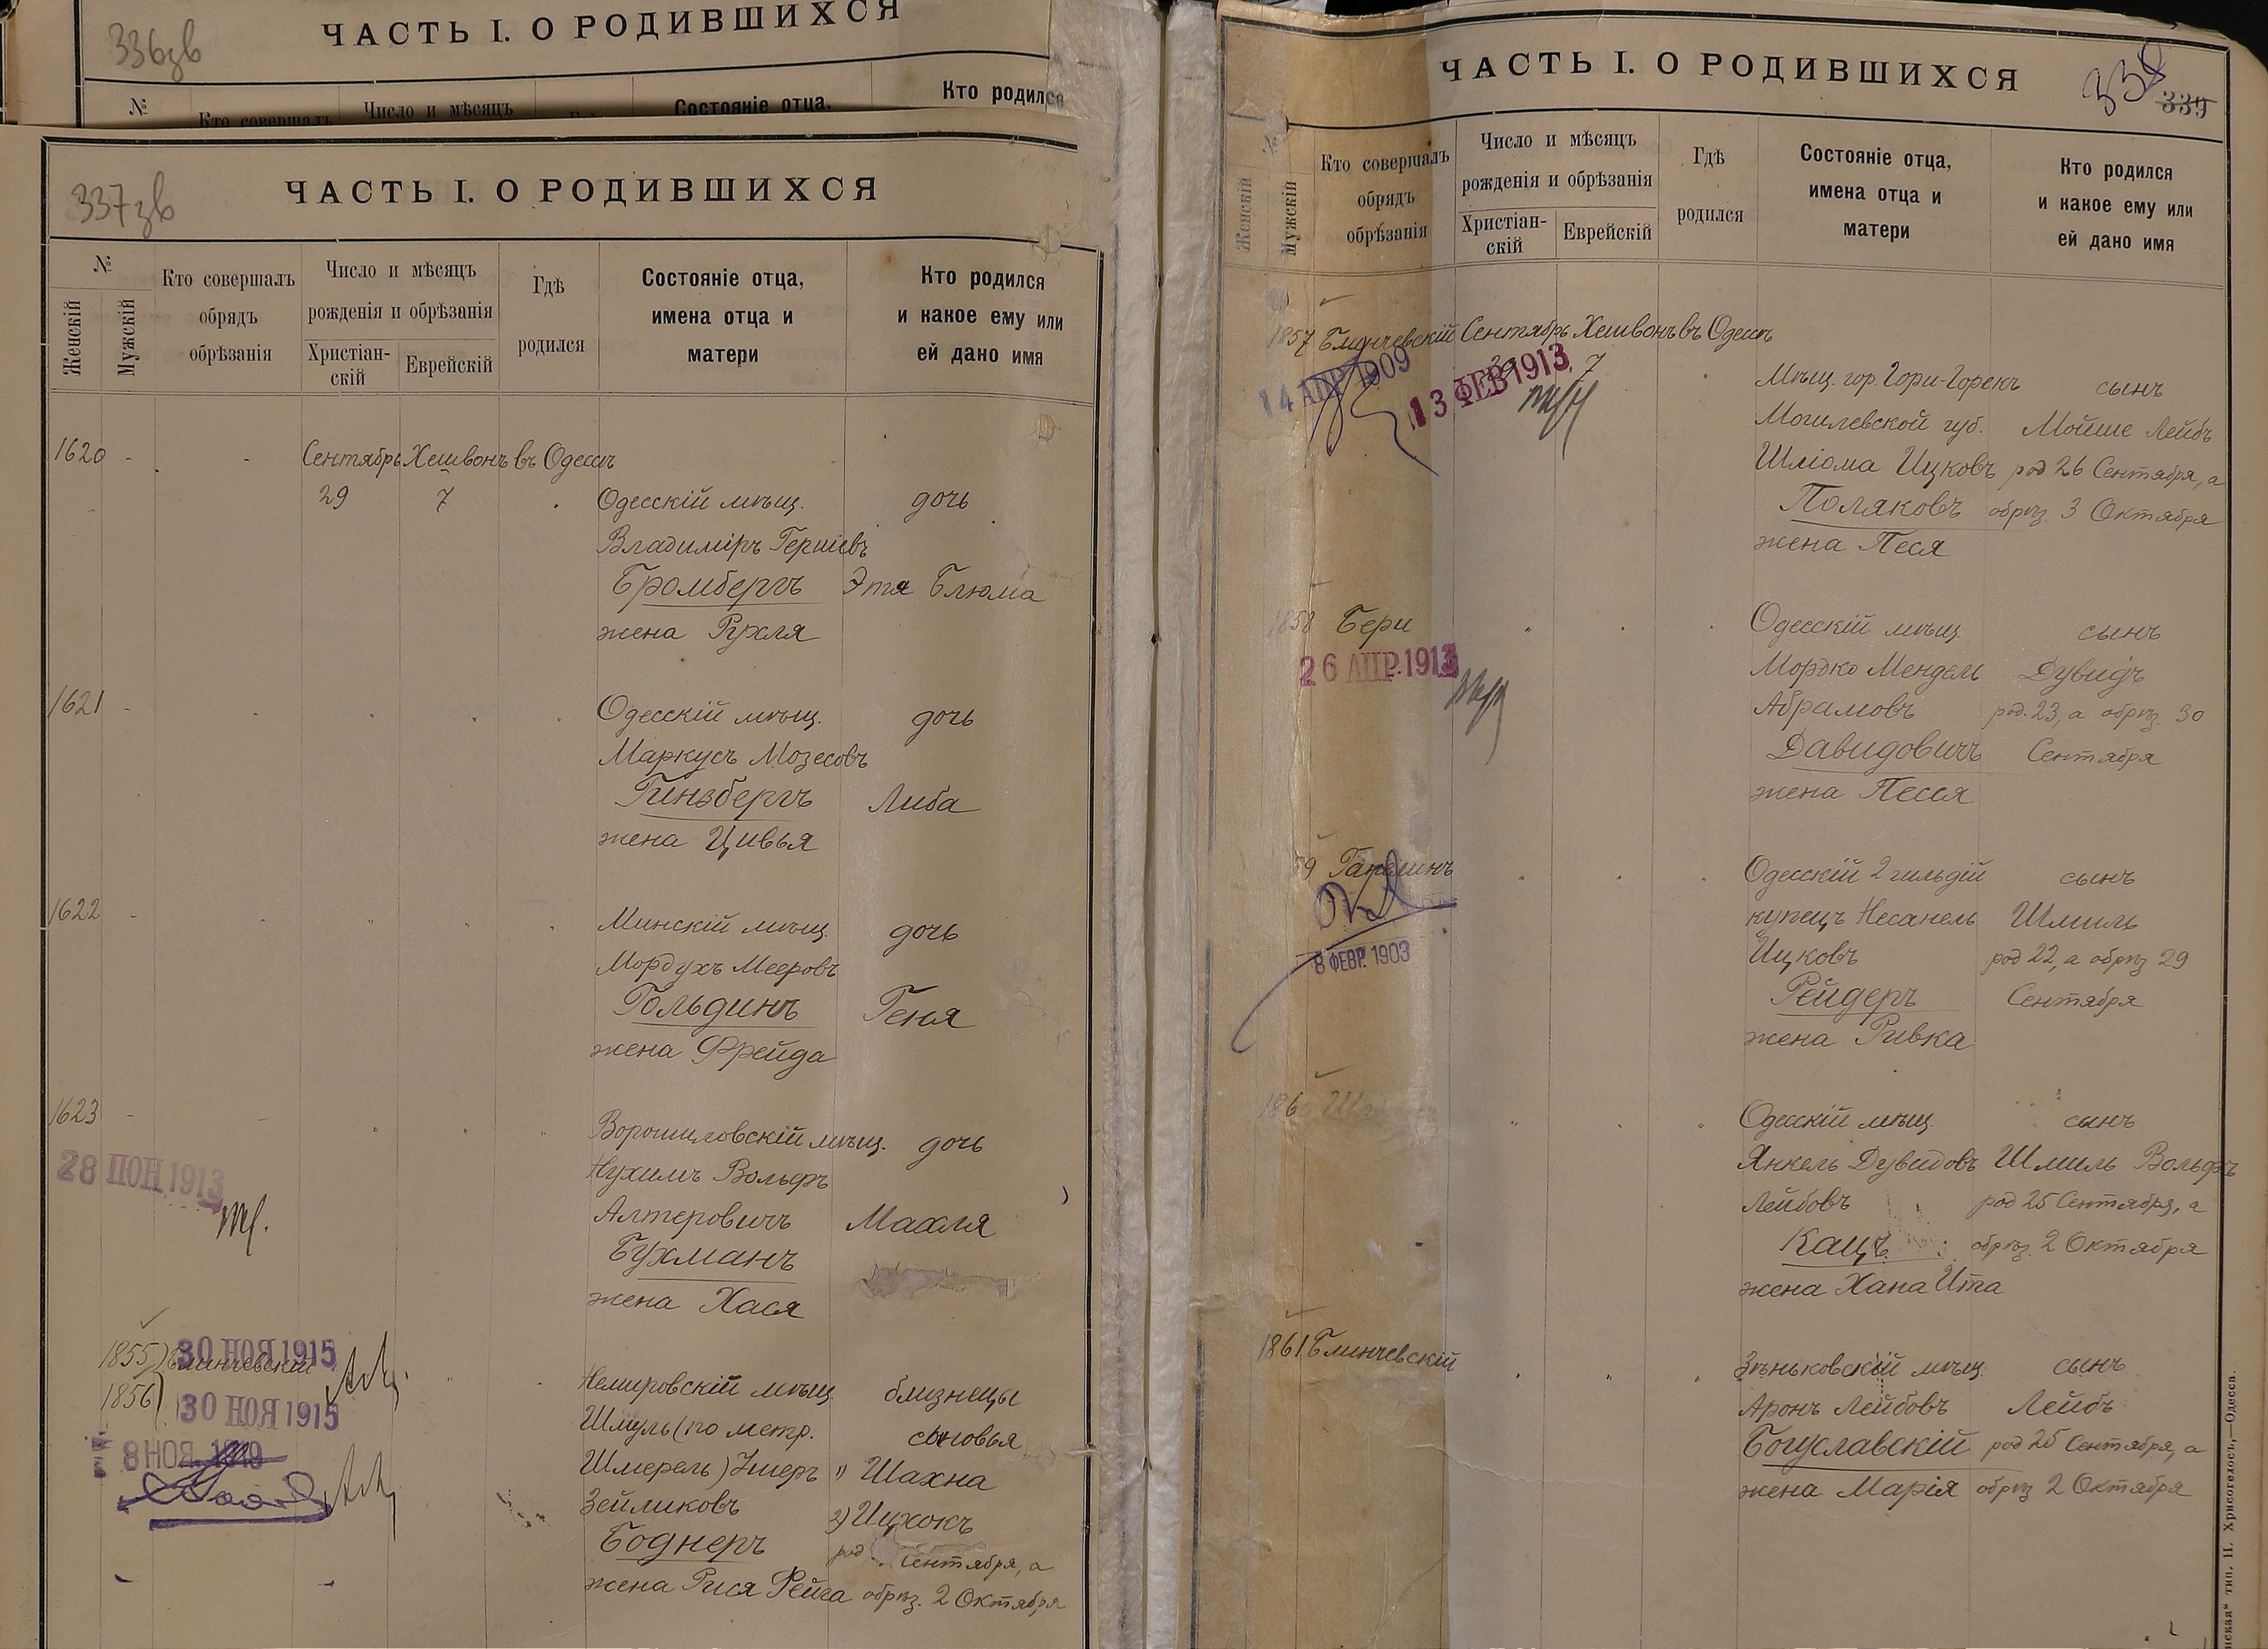 ЧАСТЬ I. О РОДИВШИХСЯ
336зв
№
Кто совершалъ
Число и мѣсяцъ
Состояніе отца,
Кто родился
337зв
ЧАСТЬ I. О РОДИВШИХСЯ
№
Женскій
Мужскій
Кто совершалъ
обрядъ
обрѣзанія
Число и мѣсяцъ
рожденія и обрѣзанія
Христіан-
скій
Еврейскій
Гдѣ
родился
Состояніе отца,
имена отца и
матери
Кто родился
и какое ему или
ей дано имя
1620 - - Сентябрь Хешвонъ въ Одессѣ
29 7 Одесскій мѣщ. дочь
Владиміръ Гершевъ
Бромбергъ Этя Блюма
жена Рухля
1621 - Одесскій мѣщ. дочь
Маркусъ Мозесовъ
Гинзбергъ Либа
жена Цивья
1622 - Минскій мѣщ. дочь
Мордухъ Мееровъ
Гольдинъ Геня
жена Фрейда
1623 - Ворошиловскій мѣщ. дочь
28 ІЮН 1913
Нухимъ Вольфъ
Алтеровичъ Махля
Бухманъ
жена Хася
1855) Блинчевскій
30 НОЯ 1915
1856)
30 НОЯ 1915
8 НОЯ. 1910
Немировскій мѣщ. близнецы
Шмуль (по метр. сыновья
Шмерель) Ушеръ 1) Шахна
Зейликовъ 2) Ицхокъ
Боднеръ род. Сентября, а
жена Рися Фейга обрѣз. 2 Октября
ЧАСТЬ I. О РОДИВШИХСЯ
338
339
№
Женскій
Мужскій
Кто совершалъ
обрядъ
обрѣзанія
Число и мѣсяцъ
рожденія и обрѣзанія
Христіан-
скій
Еврейскій
Гдѣ
родился
Состояніе отца,
имена отца и
матери
Кто родился
и какое ему или
ей дано имя
1857 Блинчевскій Сентябрь Хешвонъ въ Одессѣ
29 7
14 АПР 1909
13 ФЕВ 1913
Мѣщ. гор. Гори-Горекъ сынъ
Могилевской губ. Мойше Лейбъ
Шліома Ицковъ род 26 Сентября, а
Поляковъ обрѣз. 3 Октября
жена Песя
1858 Бери Одесскій мѣщ. сынъ
26 АПР. 1913
Мордко Мендель Дувидъ
Абрамовъ род. 23, а обрѣз. 30
Давидовичъ Сентября
жена Песся
59 Одесскій 2 гильдій сынъ
купецъ Несанель Шмиль
8 ФЕВР. 1903
Ицковъ род 22, а обрѣз 29
Рейдеръ Сентября
жена Ривка
1860 Одесскій мѣщ. сынъ
Янкель Дувидовъ Шмиль Вольфъ
Лейбовъ род 25 Сентября, а
Кацъ обрѣз. 2 Октября
жена Хана Ита
1861 Блинчевскій Зѣньковскій мѣщ. сынъ
Аронъ Лейбовъ Лейбъ
Богуславскій род 25 Сентября, а
жена Марія обрѣз 2 Октября
тип. И. Хрисогелосъ,—Одесса.